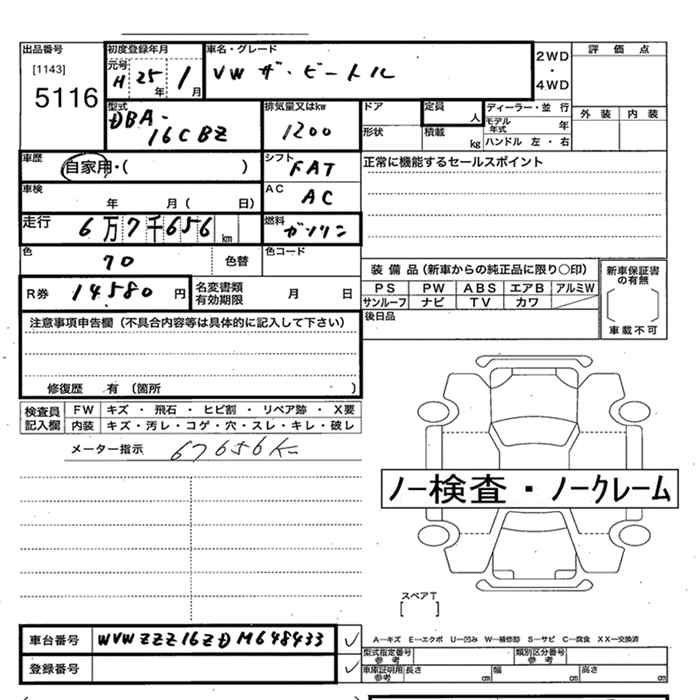 出品番号 初度登録年月 車名・グレード 2WD・4WD 評価点
[1143] 元号 H 25年 1月 VW ザ・ビートル
5116 外装 内装
型式 DBA-16CBZ 排気量又はkw 1200 ドア 定員 人 ディーラー・並行
モデル年式 年
形状 積載 kg ハンドル 左・右
車歴 自家用・( ) シフト FAT 正常に機能するセールスポイント
車検 年 月( 日) AC AC
走行 6万7千656km 燃料 ガソリン
色 70 色替 色コード
装備品(新車からの純正品に限り〇印) 新車保証書の有無
R券 14,580円 名変書類有効期限 月 日 PS PW ABS エアB アルミW
サンルーフ ナビ TV カワ
注意事項申告欄(不具合内容等は具体的に記入して下さい) 後日品 車載不可
修復歴 有(箇所 )
検査員記入欄 FW キズ・飛石・ヒビ割・リペア跡・X要
内装 キズ・汚レ・コゲ・穴・スレ・キレ・破レ
メーター指示 67656K
ノー検査・ノークレーム
スペアT
[ ]
車台番号 WVWZZZ16ZDM648433 A−キズ E−エクボ U−凹み W−補修跡 S−サビ C−腐食 XX−交換済
型式指定番号 参考 類別区分番号 参考
登録番号 車庫証明用参考 長さ cm 幅 cm 高さ cm